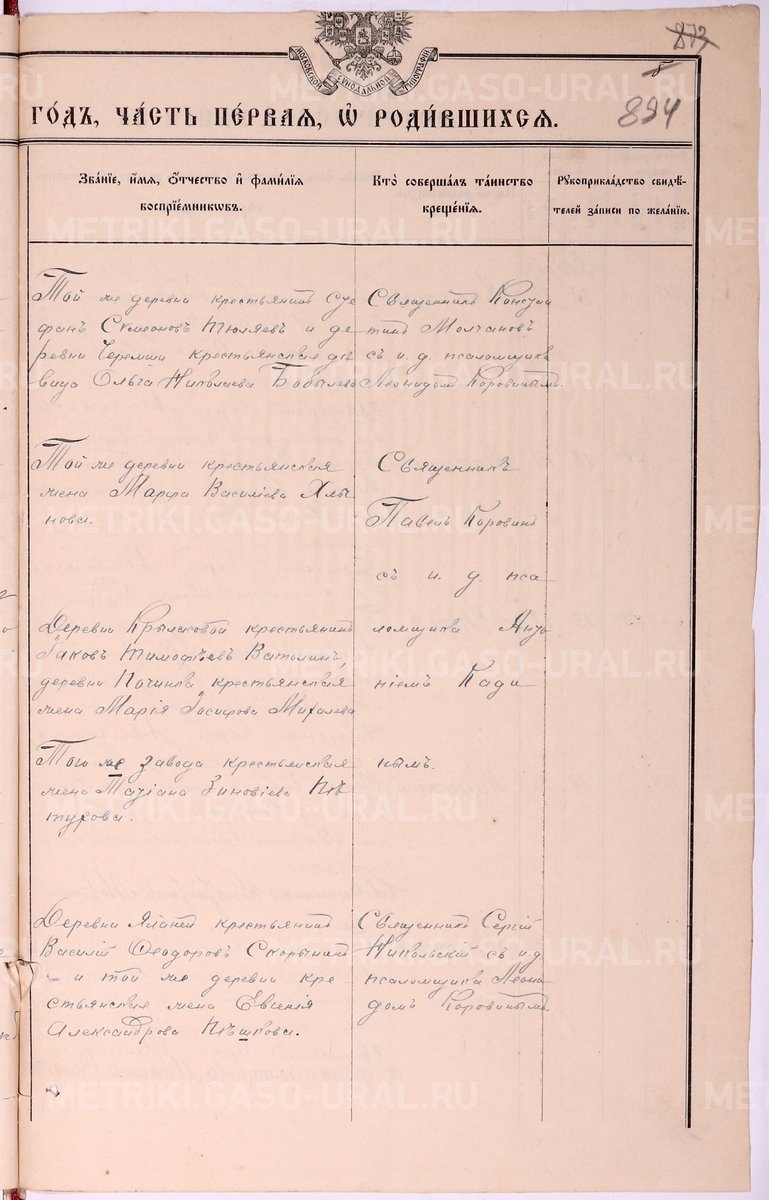 873
894
МОСКОВСКОЙ СѴНОДАЛЬНОЙ ТИПОГРАФІИ
ГОДЪ, ЧАСТЬ ПЕРВАЯ, Ѡ РОДИВШИХСЯ.
Званіе, имя, отчество и фамилія
воспріемниковъ.
Кто совершалъ таинство
крещенія.
Рукоприкладство свидѣ-
телей записи по желанію.
Той же деревни крестьянинъ Сте
фанъ Симеоновъ Тюляевъ и де
ревни Черемши крестьянская дѣ
вица Ольга Николаева Бабылева
Священникъ Констан
тинъ Молчановъ
съ и. д. псаломщика
Леонидомъ Коровинымъ.
Той же деревни крестьянская
жена Марфа Василіева Хлы
нова.
Деревни Крыласовой крестьянинъ
Іаковъ Тимофѣевъ Ватолинъ,
деревни Починка крестьянская
жена Марія Іосифова Михалева
Той же завода крестьянская
жена Татіана Зиновіева Пѣ
тухова.
Священникъ
Павелъ Коровинъ
съ и. д. пса
ломщика Анто
ніемъ Кади
нымъ.
Деревни Яланей крестьянинъ
Василій Ѳеодоровъ Скорынинъ
и той же деревни кре
стьянская жена Евгенія
Александрова Пѣшкова.
Священникъ Сергій
Никольскій съ и. д.
псаломщика Леони
домъ Коровинымъ.
METRIKI.GASO-URAL.RU